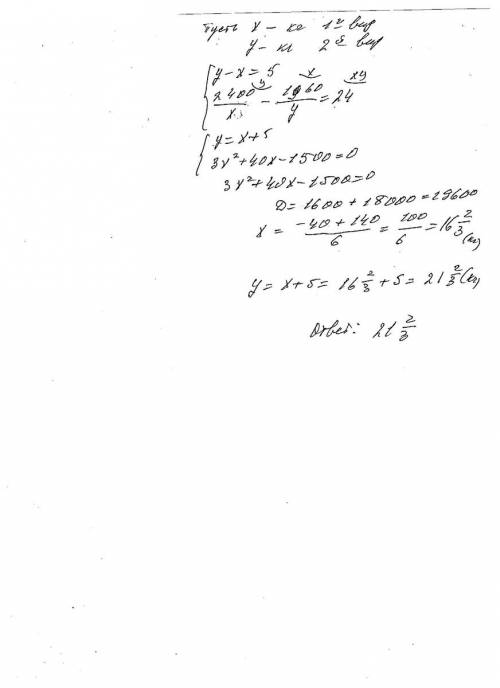 Пусть x – кг 1й вид
y – кг 2й вид
y – x = 5
2400/x – 1960/y = 24
y = x + 5
3x² + 40x – 1500 = 0
3x² + 40x – 1500 = 0
D = 1600 + 18000 = 19600
x = (–40 + 140)/6 = 100/6 = 16 2/3 (кг)
y = x + 5 = 16 2/3 + 5 = 21 2/3 (кг)
Ответ: 21 2/3